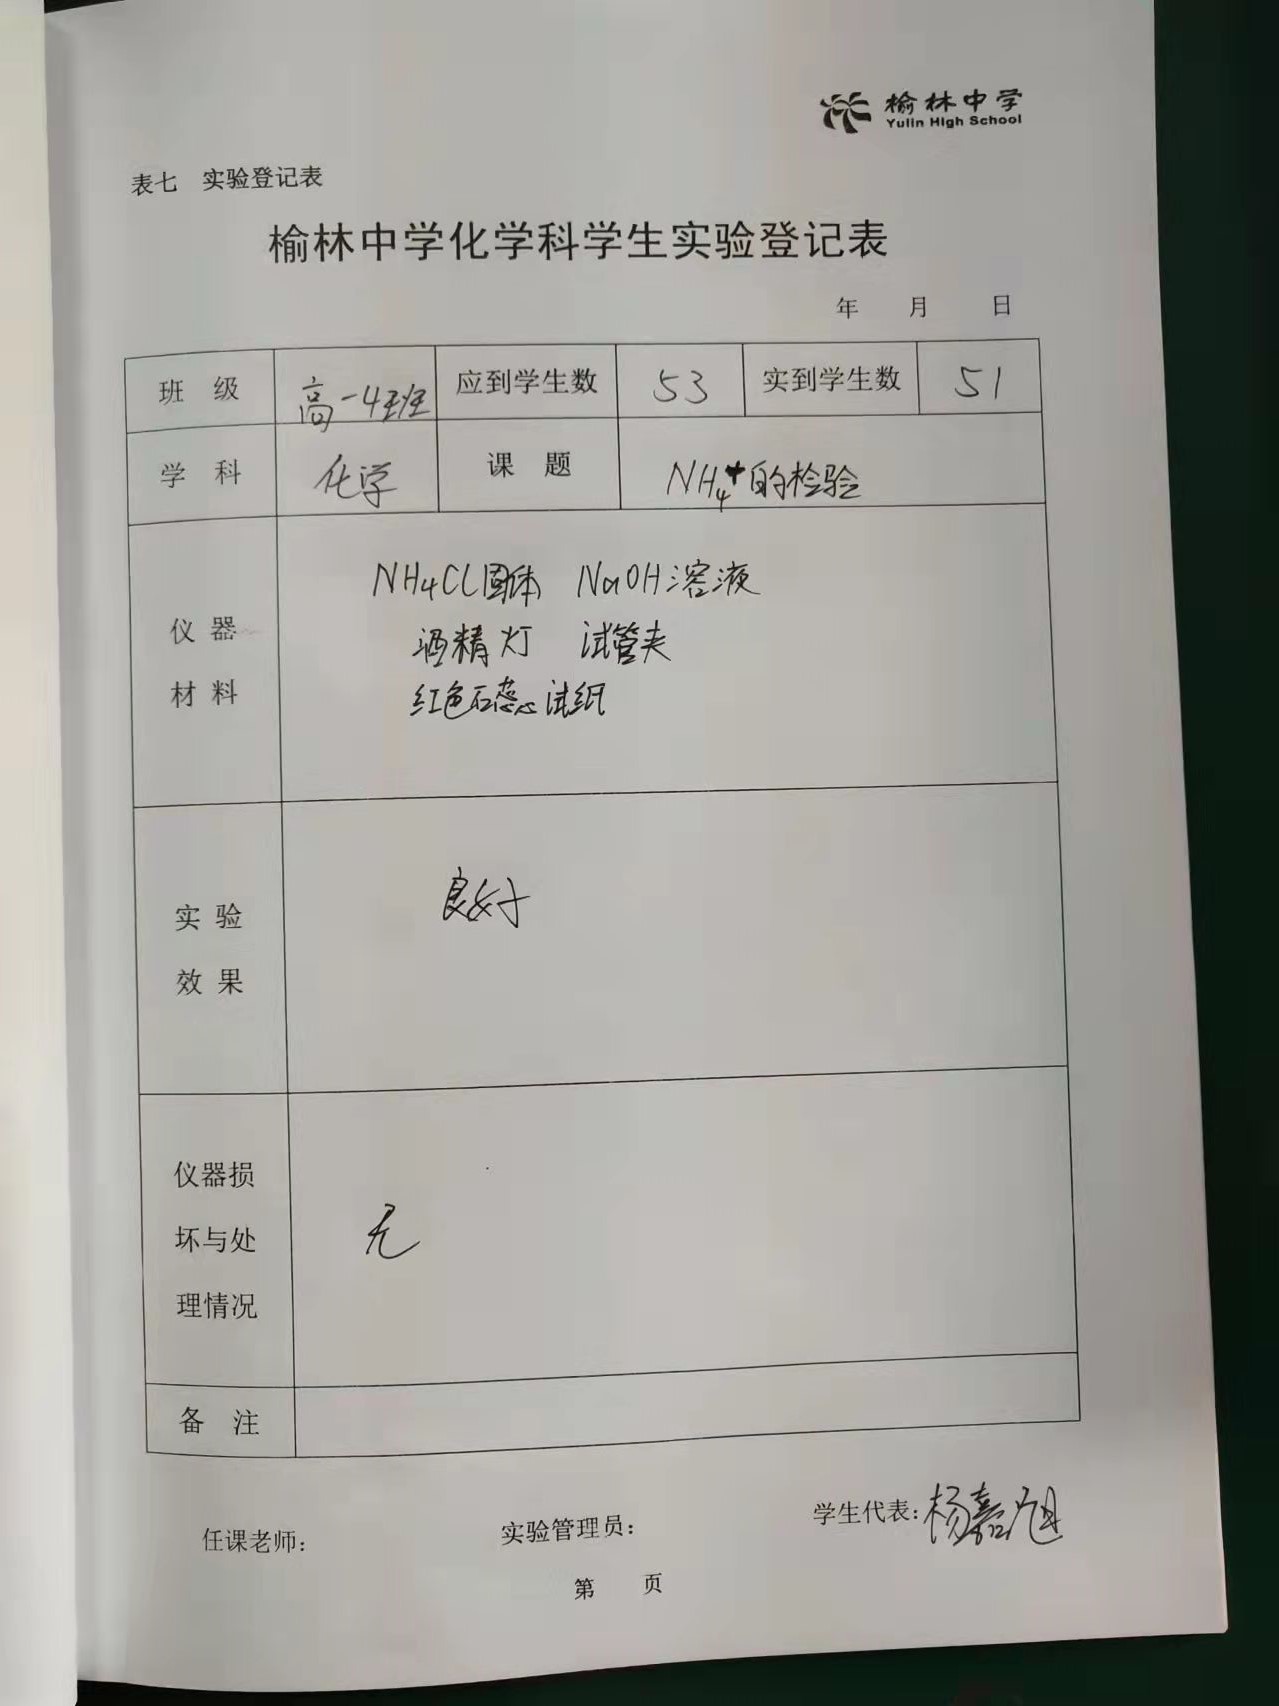 榆林中学
Yulin High School
表七 实验登记表
榆林中学化学科学生实验登记表
年 月 日
班 级 高一4班 应到学生数 53 实到学生数 51
学 科 化学 课 题 NH₄⁺的检验
仪 器
材 料
NH4Cl固体 NaOH溶液
酒精灯 试管夹
红色石蕊试纸
实 验
效 果
良好
仪器损
坏与处
理情况
无
备 注
任课老师: 实验管理员: 学生代表:杨嘉旭
第 页